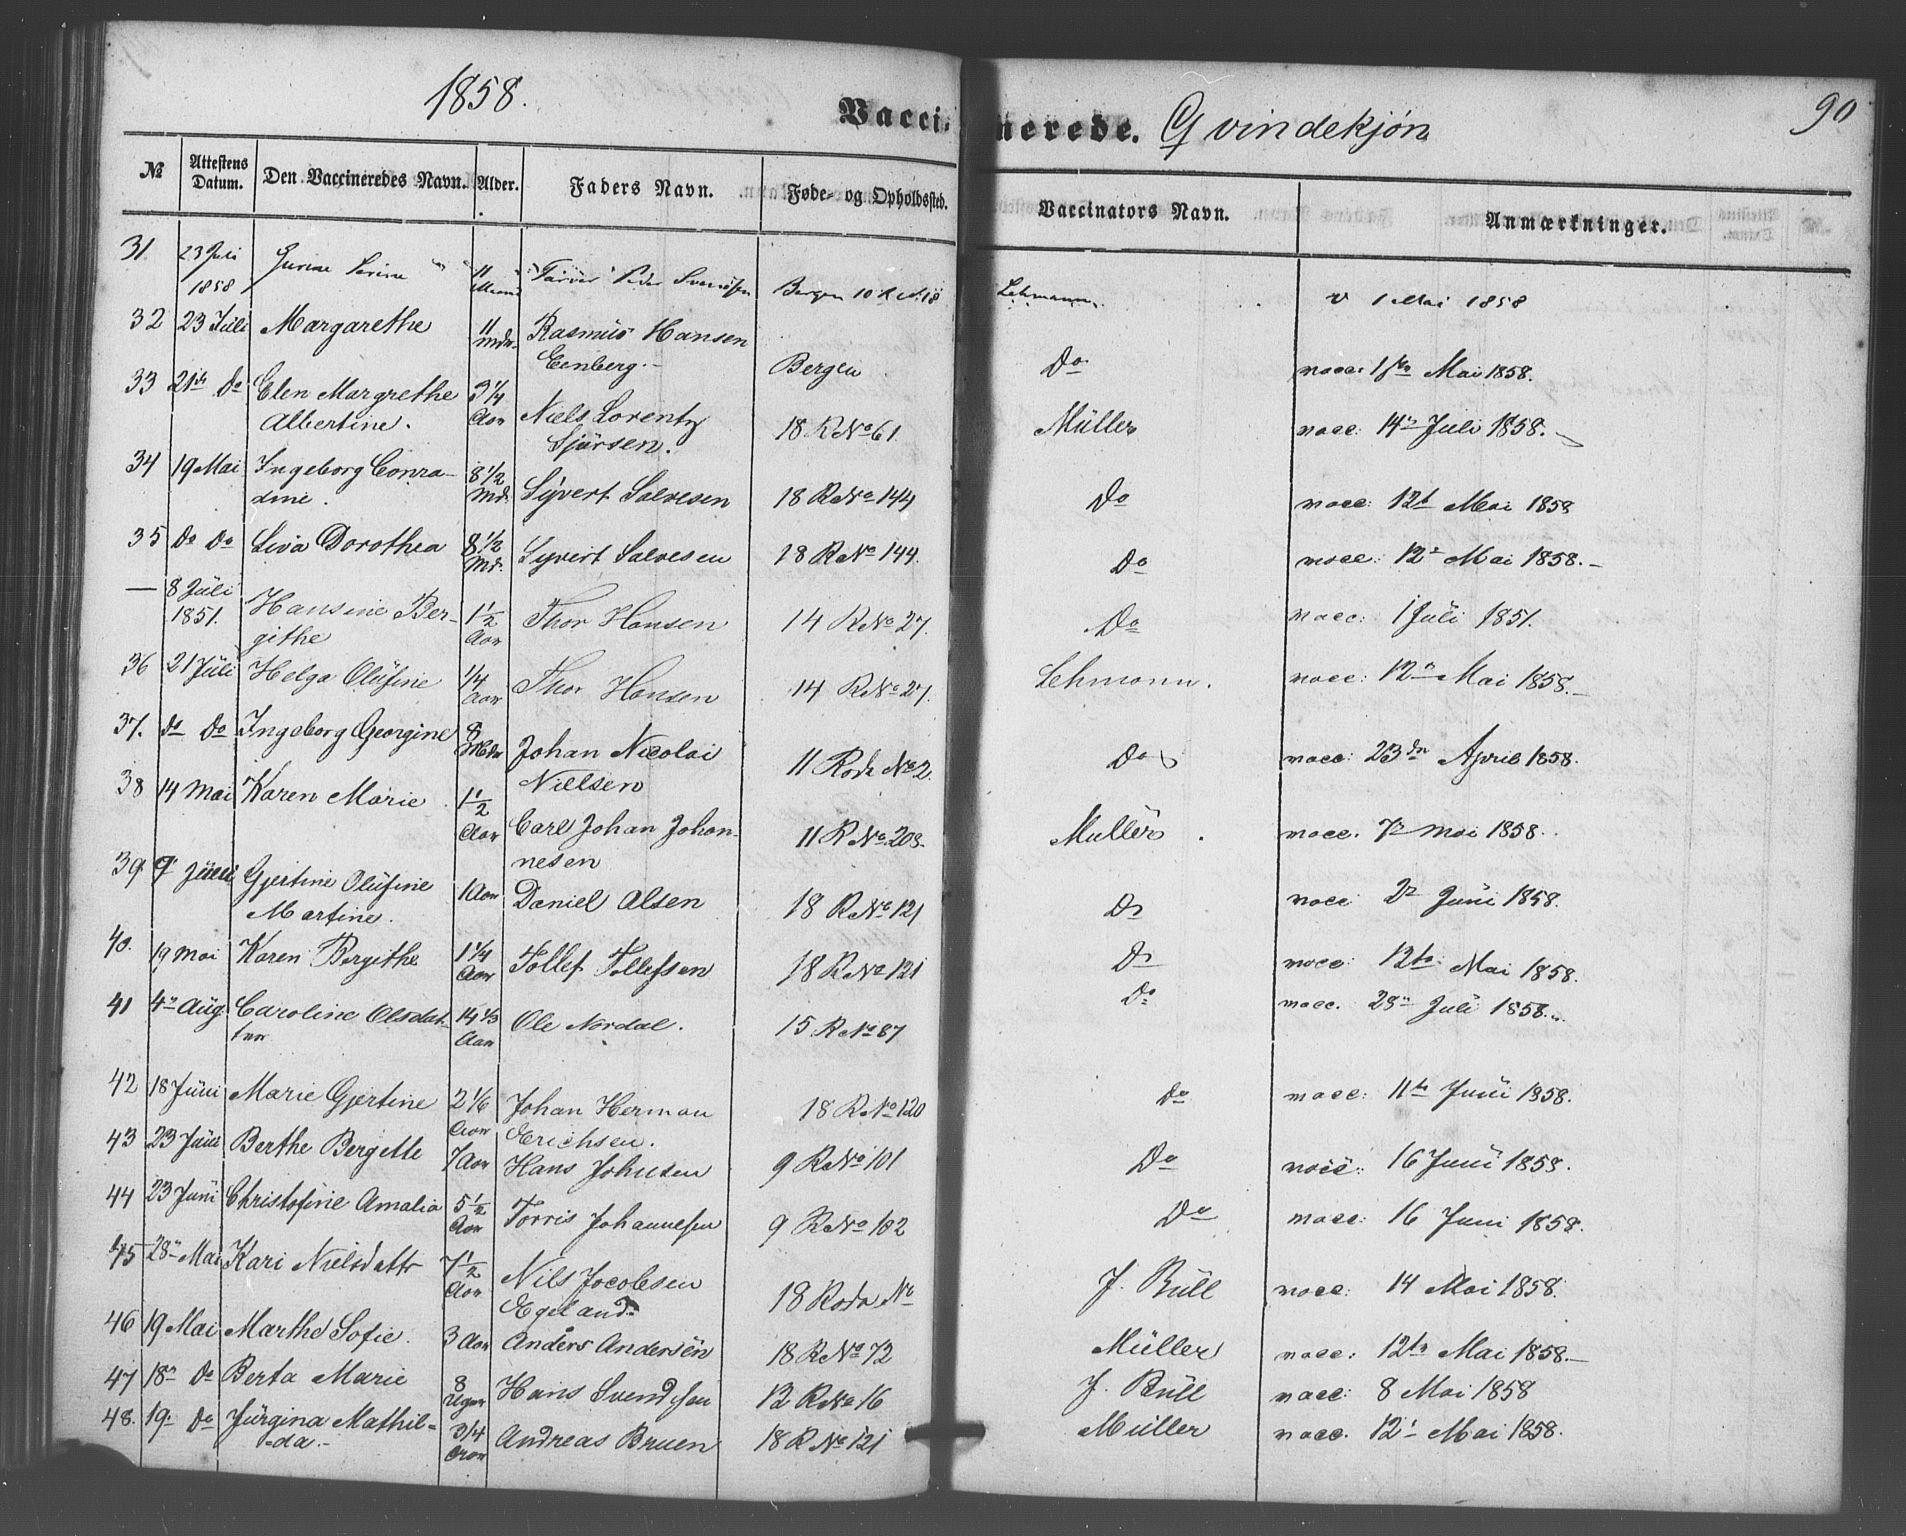 1858.
Vaccinerede. Qvindekjøn
90
№ | Attestens Datum. | Den Vaccineredes Navn. | Alder. | Faders Navn. | Føde- og Opholdssted. | Vaccinators Navn. | Anmærkninger.
31 | 23 Juli 1858 | Serine | 11 | Peder | Bergen 10 R № 18 | Lehmann | v 1 Mai 1858
32 | 23 Juli | Margarethe | 11 Mdr. | Rasmus Hansen Eenberg. | Bergen | Do | vacc: 1ste Mai 1858.
33 | 21de Do | Elen Margrethe Albertine. | 3 1/4 Aar | Niels Lorentz Sjørsen. | 18 R № 61. | Müller | vacc: 14n Juli 1858.
34 | 19 Mai | Ingeborg Conradine. | 8 1/2 Md. | Syvert Salvesen | 18 R № 144 | Do | vacc: 12t Mai 1858
35 | Do Do | Liva Dorothea | 8 1/2 Md. | Syvert Salvesen | 18 R № 144. | Do | vacc: 12n Mai 1858.
— | 8 Juli 1851. | Hansine Bergithe | 1 1/2 Aar | Thor Hansen | 14 R № 27. | Do | vacc: 1 Juli 1851.
36 | 21 Juli | Helga Olufine | 1/4 Aar | Thor Hansen | 14 R № 27. | Lehmann. | vacc: 12n Mai 1858.
37. | do Do | Ingeborg Georgine | 8 Mdr | Johan Nicolai Nielsen | 11 Rode № 2. | Do | vacc: 23de April 1858.
38 | 14 Mai | Karen Marie | 1 1/2 Aar | Carl Johan Johannesen | 11 R № 208. | Müller | vacc. 7n Mai 1858.
39. | 9 Juni | Gjertine Olufine Martine. | 1 Aar | Daniel Olsen | 18 R № 121 | Do | vacc 2n Juni 1858.
40. | 19 Mai | Karen Bergithe | 1 1/4 Aar | Tollef Tollefsen | 18 R № 121 | Do | vacc: 12te Mai 1858.
41 | 4n Aug. | Caroline Olsdatter | 14 1/3 Aar | Ole Nordal. | 15 R № 87 | Do | vacc. 28n Juli 1858.
42 | 18 Juni | Marie Gjertine | 2 1/6 Aar | Johan Herman Erichsen. | 18 R № 120 | Do | vacc: 11te Juni 1858.
43 | 23 Juni | Berthe Bergette | 7 Aar | Hans Johnsen | 9 R № 101 | Do | vacc: 16 Juni 1858.
44 | 23 Juni | Christofine Amalia | 5 1/2 Aar | Torris Johannesen | 9 R № 102 | Do | vacc: 16 Juni 1858.
45 | 28n Mai | Kari Nielsdattr | 7 1/2 Aar | Nils Jacobsen Egeland. | 18 Rode № | J. Büll | vacc: 14 Mai 1858.
46 | 19 Mai | Marthe Sofie. | 3 Aar | Anders Andersen | 18 R № 72 | Müller | vacc: 12te Mai 1858.
47 | 18n Do | Berta Marie | 8 Uger | Hans Svendsen | 12 R № 16 | J. Büll | vacc: 8 Mai 1858
48. | 19. Do | Jürgina Mathilda. | 3/4 Aar | Andreas Bruen | 18 R № 121 | Müller | vacc. 12t Mai 1858.